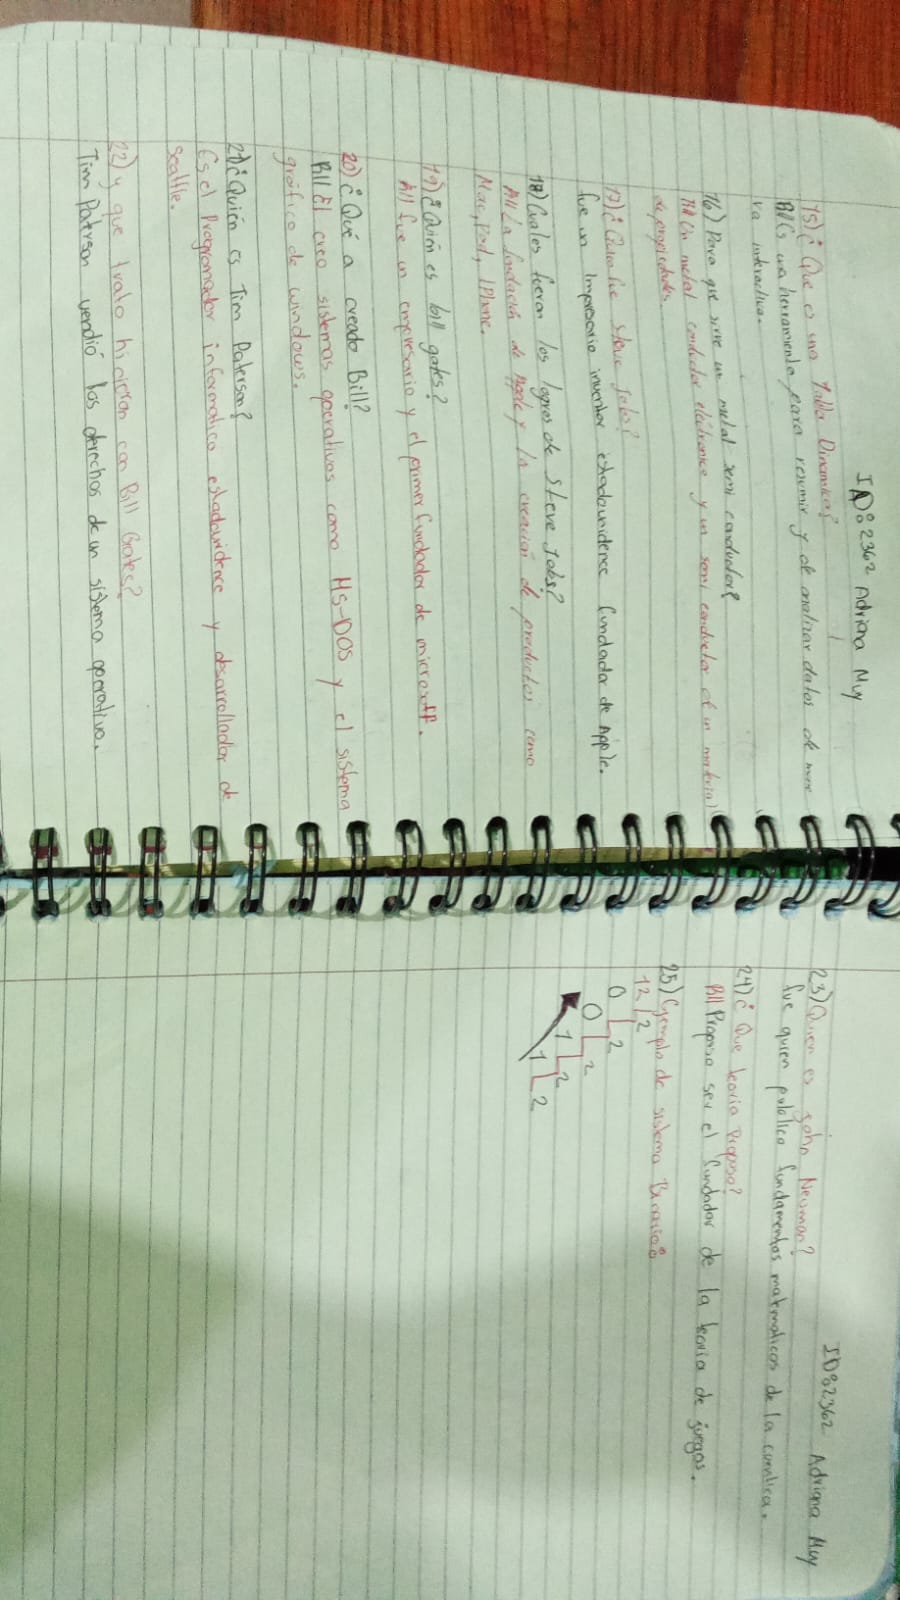 ID:2362 Adriana Muy
15) ¿Que es una Tabla Dinamicas?
R// Es una herramienta para resumir y de analizar datos de
va interactiva.
16) Para que sirve un metal semi conductor?
R// Un metal conductor electronico y un semi conductor de un material
de propiedades.
17) ¿Quien fue Steve Jobs?
fue un Impresario inventor estadounidence fundador de Apple.
18) Cuales fueron los logros de Steve Jobs?
R// La fundación de Apple y la creación de productos como
Mac, iPod, iPhone.
19) ¿Quién es bill gates?
R// fue un empresario y el primer fundador de microsoff.
20) ¿Qué a creado Bill?
R// El creo sistemas operativos como MS-DOS y el sistema
gráfico de windows.
21) ¿Quién es Tim Paterson?
Es el Programador informatico estadounidence y desarrollador de
seattle.
22) y que trato hicieron con Bill Gates?
Tim Paterson vendió los derechos de un sistema operativo.
ID:2362 Adriana Muy
23) Quien es john Neuman?
fue quien publico fundamentos matematicos de la cuantica.
24) ¿ Que teoria Propuso?
R// Propuso ser el fundador de la teoria de juegos.
25) Ejemplo de sistema Binario:
12 2
0 2
0 2
1 2
1 2